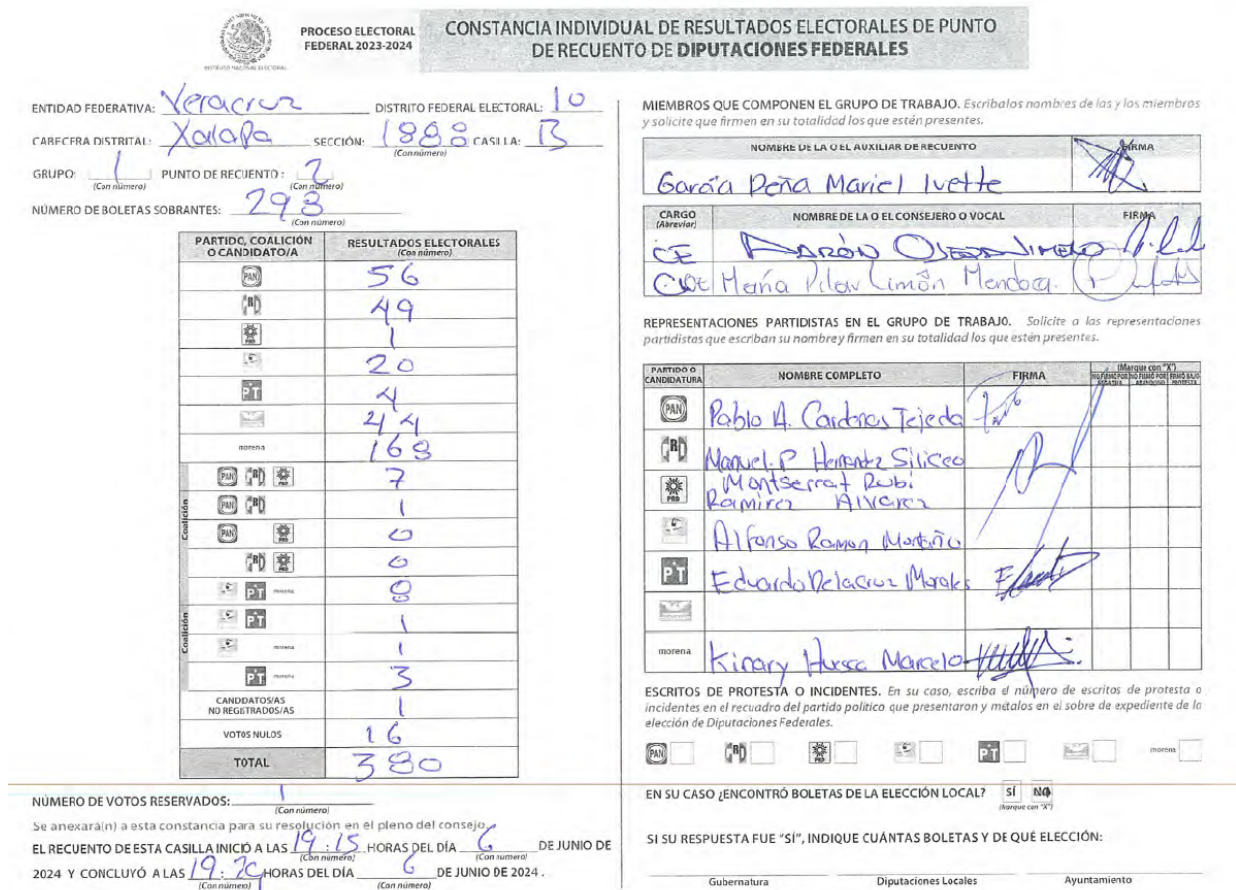 PROCESO ELECTORAL
FEDERAL 2023-2024
INSTITUTO NACIONAL ELECTORAL
CONSTANCIA INDIVIDUAL DE RESULTADOS ELECTORALES DE PUNTO
DE RECUENTO DE DIPUTACIONES FEDERALES
ENTIDAD FEDERATIVA: Veracruz DISTRITO FEDERAL ELECTORAL: 10
CABECERA DISTRITAL: Xalapa SECCIÓN: 1888 CASILLA: B
(Con número)
GRUPO: 1 PUNTO DE RECUENTO: 2
(Con número) (Con número)
NÚMERO DE BOLETAS SOBRANTES: 298
(Con número)
PARTIDO, COALICIÓN O CANDIDATO/A RESULTADOS ELECTORALES (Con número)
PAN 56
PRD 49
PRD 1
20
PT 4
44
morena 168
Coalición
PAN PRD 7
PAN 1
PAN PRD 0
PRD 0
Coalición
PT morena 8
PT 1
morena 1
PT morena 3
CANDIDATOS/AS NO REGISTRADOS/AS 1
VOTOS NULOS 16
TOTAL 380
NÚMERO DE VOTOS RESERVADOS: 1
(Con número)
Se anexará(n) a esta constancia para su resolución en el pleno del consejo.
EL RECUENTO DE ESTA CASILLA INICIÓ A LAS 19:15 HORAS DEL DÍA 6 DE JUNIO DE
(Con número) (Con número)
2024 Y CONCLUYÓ A LAS 19: HORAS DEL DÍA 6 DE JUNIO DE 2024.
(Con número) (Con número)
MIEMBROS QUE COMPONEN EL GRUPO DE TRABAJO. Escriba los nombres de las y los miembros
y solicite que firmen en su totalidad los que estén presentes.
NOMBRE DE LA O EL AUXILIAR DE RECUENTO FIRMA
García Peña Mariel Ivette
CARGO (Abreviar) NOMBRE DE LA O EL CONSEJERO O VOCAL FIRMA
CE Adrón
María Pilar Limón Mendoza
REPRESENTACIONES PARTIDISTAS EN EL GRUPO DE TRABAJO. Solicite a las representaciones
partidistas que escriban su nombre y firmen en su totalidad los que estén presentes.
PARTIDO O CANDIDATURA NOMBRE COMPLETO FIRMA (Marque con "X") NO FIRMÓ POR NEGATIVA NO FIRMÓ POR ABANDONO FIRMÓ BAJO PROTESTA
PAN Pablo A. Cardenas Tejeda
Manuel P Siliceo
PRD Montserrat Rubí
Ramirez Alvarez
Alfonso Ramon Montaño
PT Eduardo Delacruz Morales
morena Kinary Huesca Marcelo
ESCRITOS DE PROTESTA O INCIDENTES. En su caso, escriba el número de escritos de protesta o
incidentes en el recuadro del partido político que presentaron y métalos en el sobre de expediente de la
elección de Diputaciones Federales.
PAN PRD PT morena
EN SU CASO ¿ENCONTRÓ BOLETAS DE LA ELECCIÓN LOCAL? SÍ NO
(Marque con "X")
SI SU RESPUESTA FUE "SÍ", INDIQUE CUÁNTAS BOLETAS Y DE QUÉ ELECCIÓN:
Gubernatura Diputaciones Locales Ayuntamiento